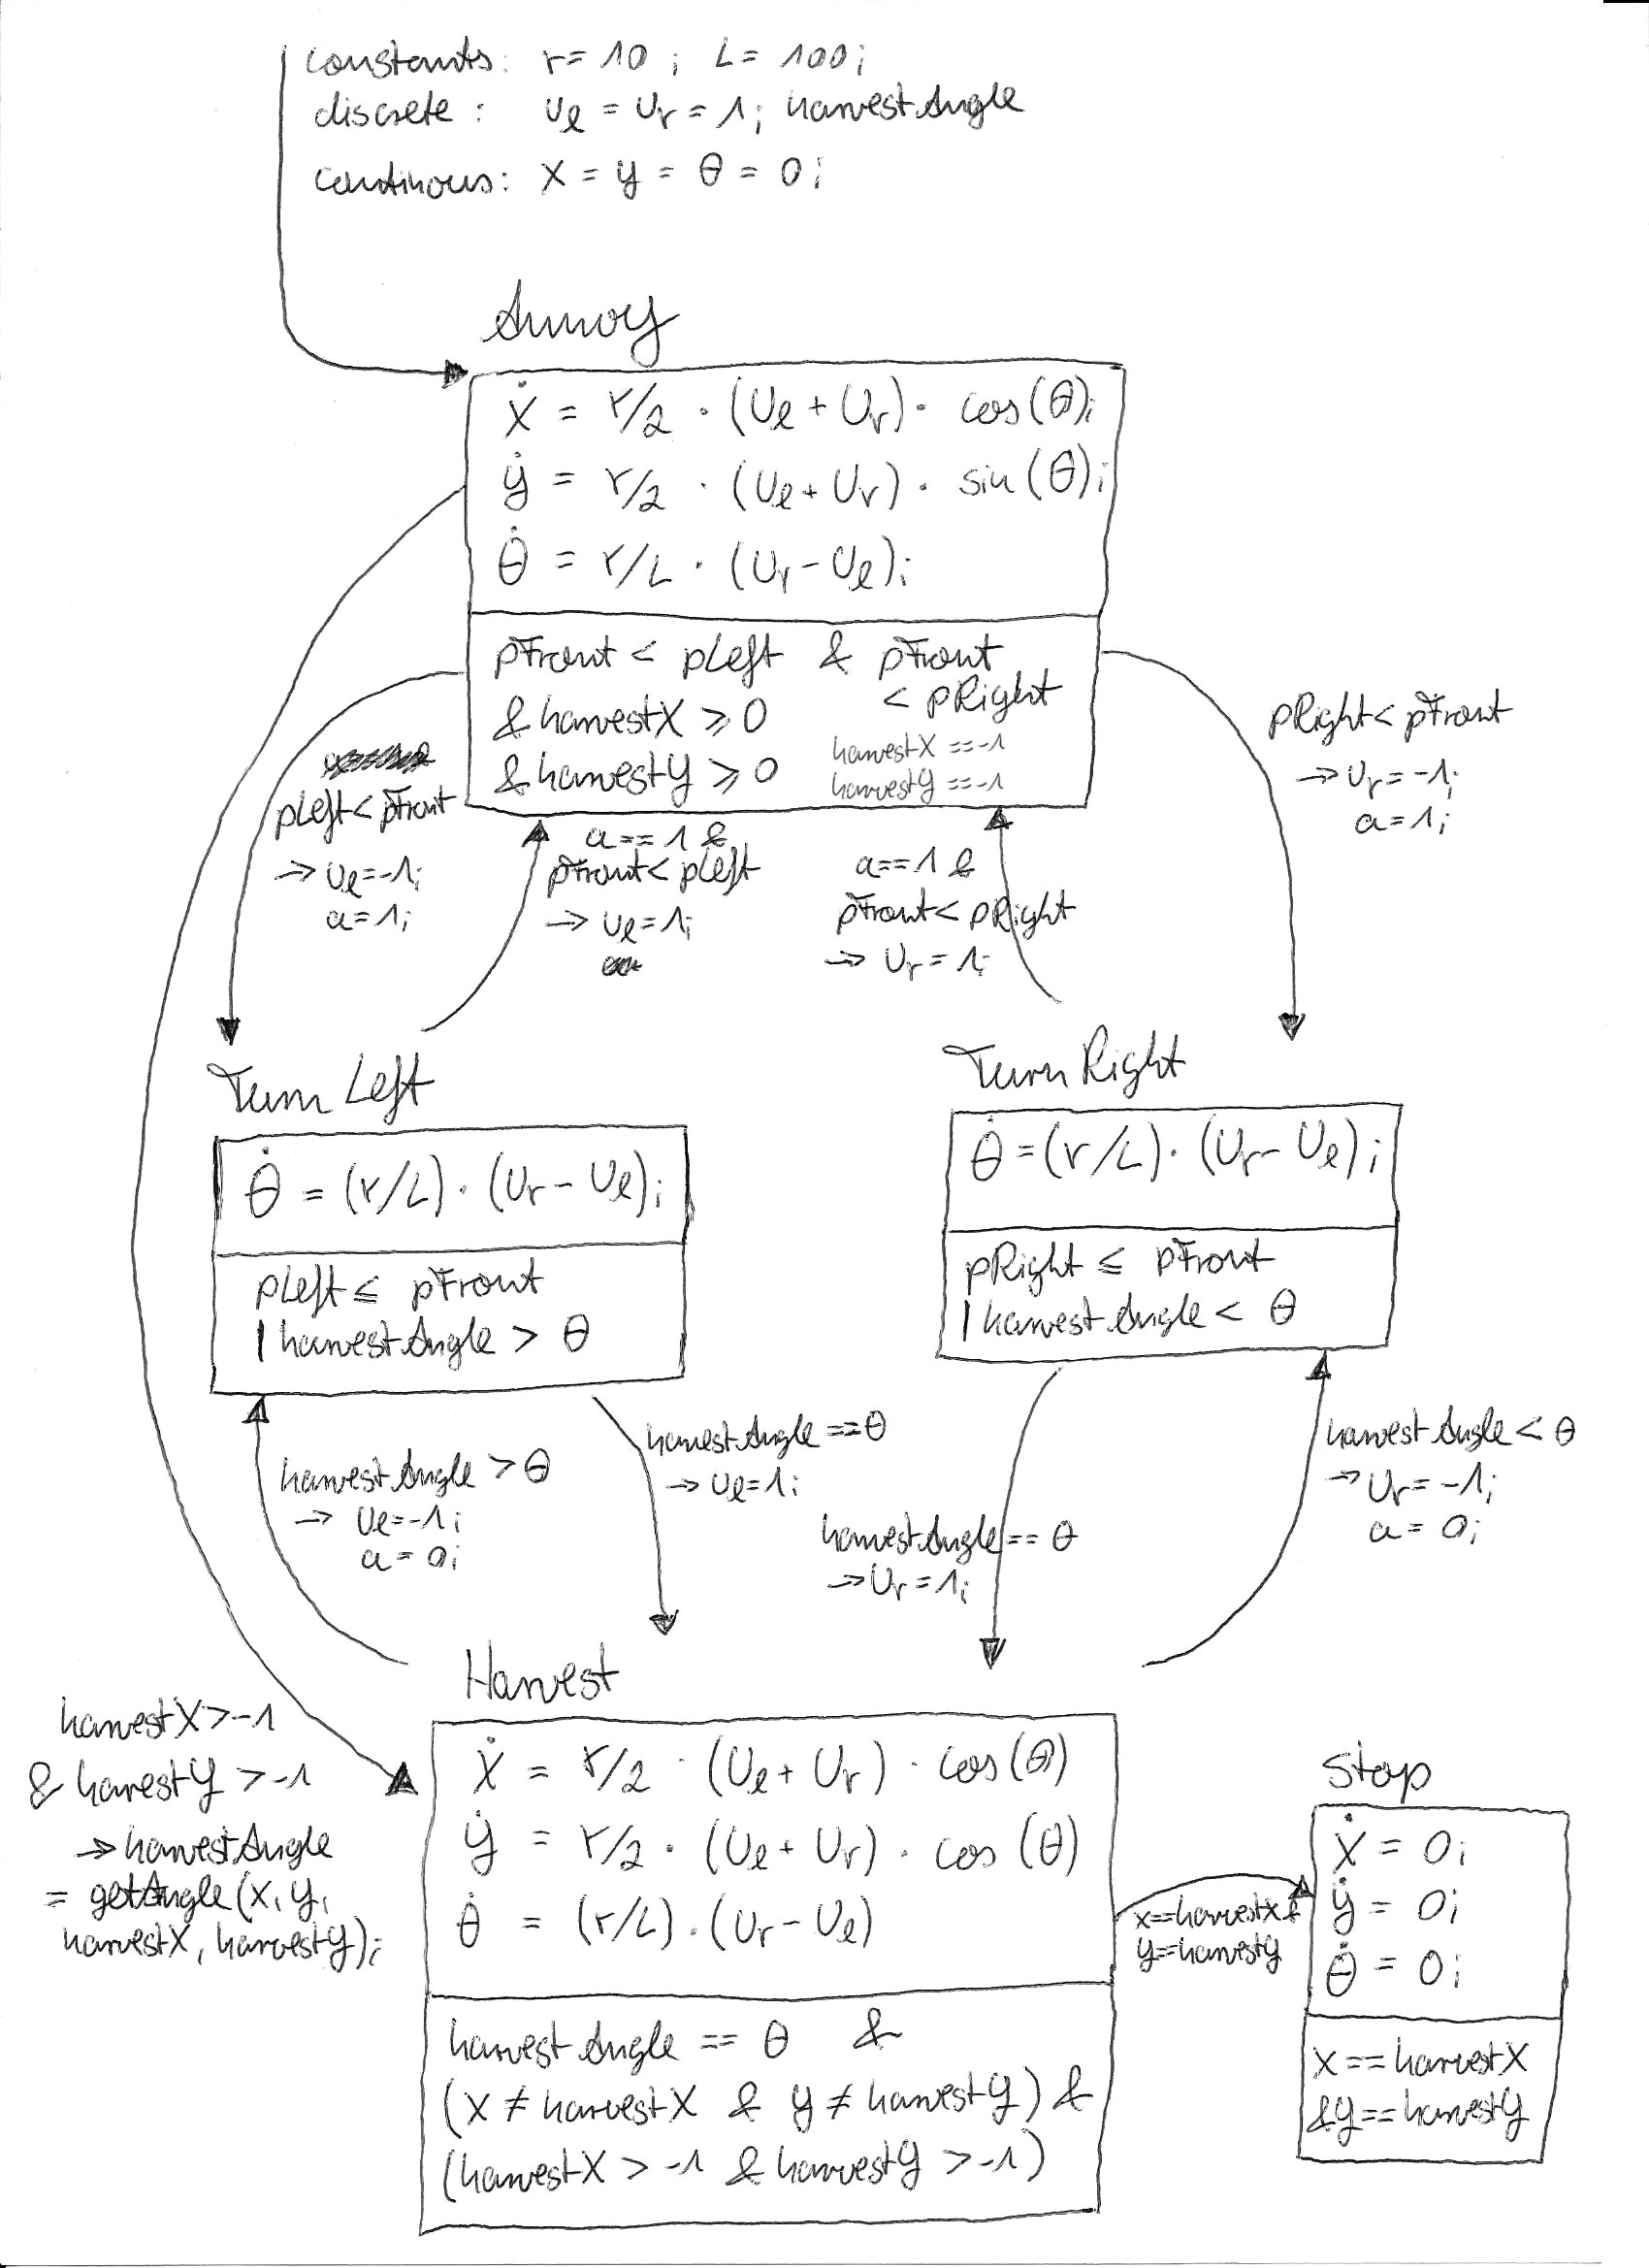 constants: r = 10 ; L = 100;
discrete : Uℓ = Ur = 1; harvestAngle
continous: x = y = θ = 0;
Annoy
ẋ = r/2 · (Uℓ + Ur) · cos(θ);
ẏ = r/2 · (Uℓ + Ur) · sin(θ);
θ̇ = r/L · (Ur - Uℓ);
pFront < pLeft & pFront
< pRight
& harvestX ⩾ 0
& harvestY ⩾ 0
harvestX == -1
harvestY == -1
pLeft < pFront
→ Uℓ = -1;
a = 1;
a == 1 &
pFront < pLeft
→ Uℓ = 1;
a == 1 &
pFront < pRight
→ Ur = 1;
pRight < pFront
→ Ur = -1;
a = 1;
Turn Left
θ̇ = (r/L) · (Ur - Uℓ);
pLeft ≦ pFront
| harvestAngle > θ
Turn Right
θ̇ = (r/L) · (Ur - Uℓ);
pRight ≦ pFront
| harvestAngle < θ
harvestAngle > θ
→ Uℓ = -1;
a = 0;
harvestAngle == θ
→ Uℓ = 1;
harvestAngle == θ
→ Ur = 1;
harvestAngle < θ
→ Ur = -1;
a = 0;
harvestX > -1
& harestY > -1
→ harvestAngle
= getAngle(x, y,
harvestX, harvestY);
Harvest
ẋ = r/2 · (Uℓ + Ur) · cos(θ)
ẏ = r/2 · (Uℓ + Ur) · cos(θ)
θ̇ = (r/L) · (Ur - Uℓ)
harvestAngle == θ &
(x ≠ harvestX & y ≠ harvestY) &
(harvestX > -1 & harvestY > -1)
x==harvestX &
y==harvestY
Stop
ẋ = 0;
ẏ = 0;
θ̇ = 0;
x == harvestX
& y == harvestY